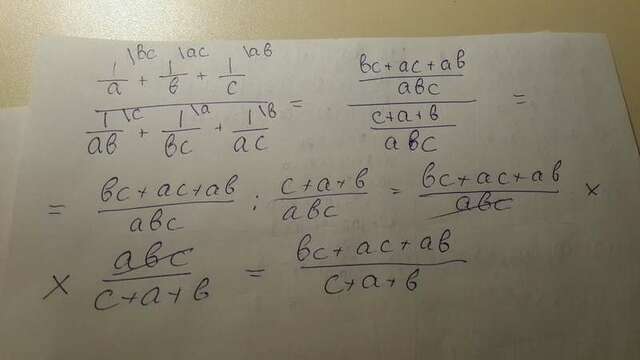 1/a \bc + 1/b \ac + 1/c \ab
1/ab \c + 1/bc \a + 1/ac \b = (bc+ac+ab)/abc / (c+a+b)/abc =
= (bc+ac+ab)/abc : (c+a+b)/abc = (bc+ac+ab)/abc ×
× abc/(c+a+b) = (bc+ac+ab)/(c+a+b)